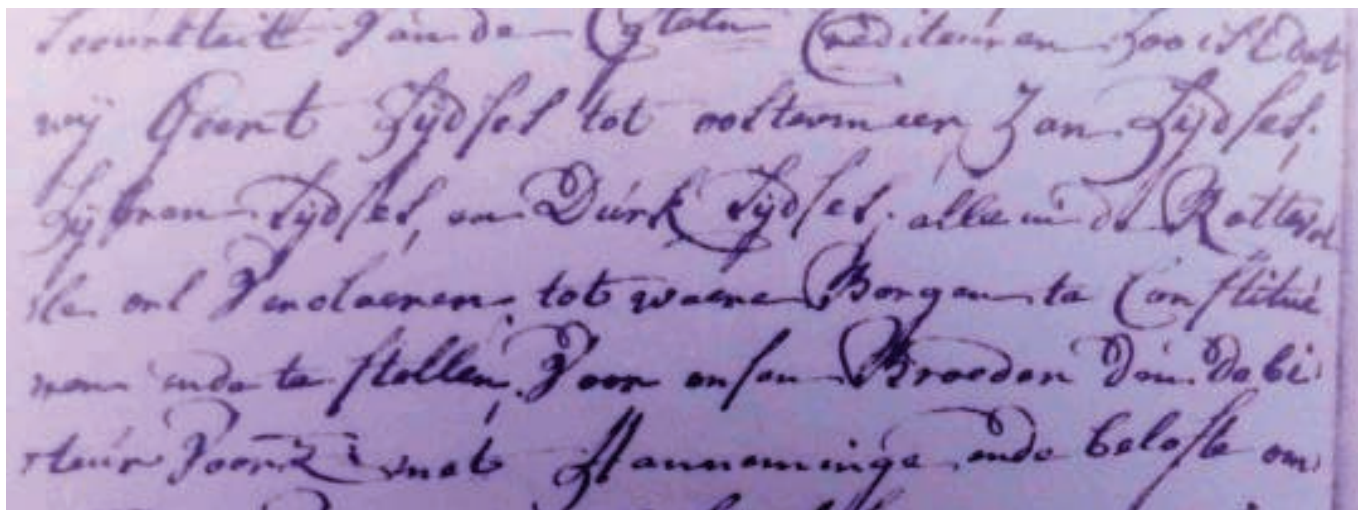 Securiteit van de Crediteuren Zoo ist dat
wij Geert Sijdses tot oostermeer Jan Sijdses,
Sijbren Sijdses, en Durk Sijdses, alle in de Rottevel
le ons Verclaeren, tot waere Borgen te Constitue
ren ende te stellen, Voor onsen Broeder den debi
teur Voorz: met Aanneminge ende belofte om